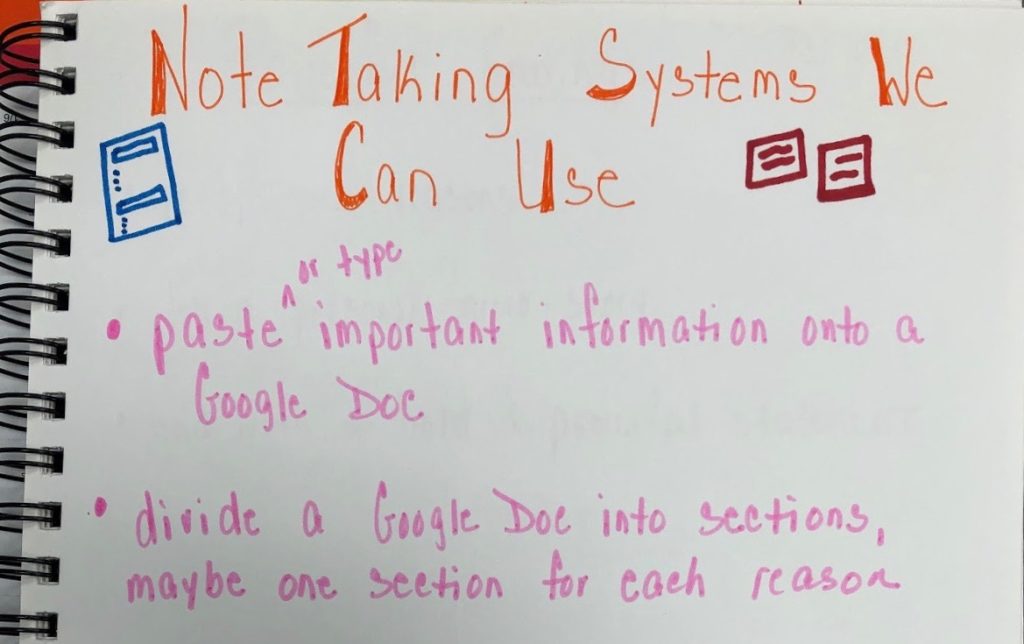 Note Taking Systems We
Can Use
or type
• paste ^ important information onto a
Google Doc
• divide a Google Doc into sections,
maybe one section for each reason